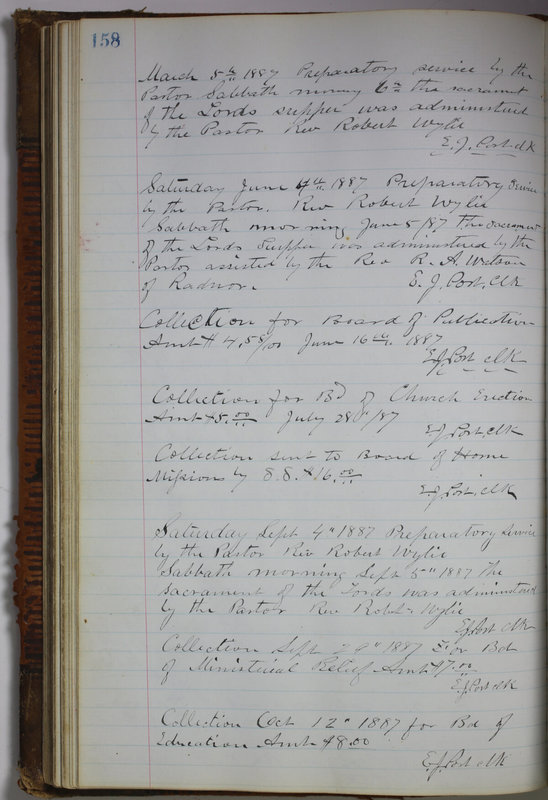 158
March 5th 1887 Preparatory service by the
Pastor Sabbath morning 6th the sacrament
of the Lords supper was administered
by the Pastor Rev Robert Wylie
E. J. Post clk
Saturday June 4th 1887 Preparatory service
by the Pastor. Rev Robert Wylie
Sabbath morning June 5/87 The Sacrament
of the Lords Supper was administered by the
Pastor assisted by the Rev R. A. Watson
of Radnor.
E. J. Post, Clk
Collection for Board of Publication
Amt $ 4.58/00 June 16th 1887
E J Post clk
Collection for Bd of Church Erection
Amt $5.00 July 28th/87
E J Post, clk
Collection sent to Board of Home
Missions by S.S. $16.00
E J Post, clk
Saturday Sept 4th 1887 Preparatory service
by the Pastor Rev Robert Wylie
Sabbath morning Sept 5th 1887 The
sacrament of the Lords was administered
by the Pastor Rev Robt Wylie
E J Post clk
Collection Sept 29th 1887 For Bd
of Ministerial Relief Amt $7.00
E J Post clk
Collection Oct 12th 1887 for Bd of
Education Amt $8.00
E. J. Post clk